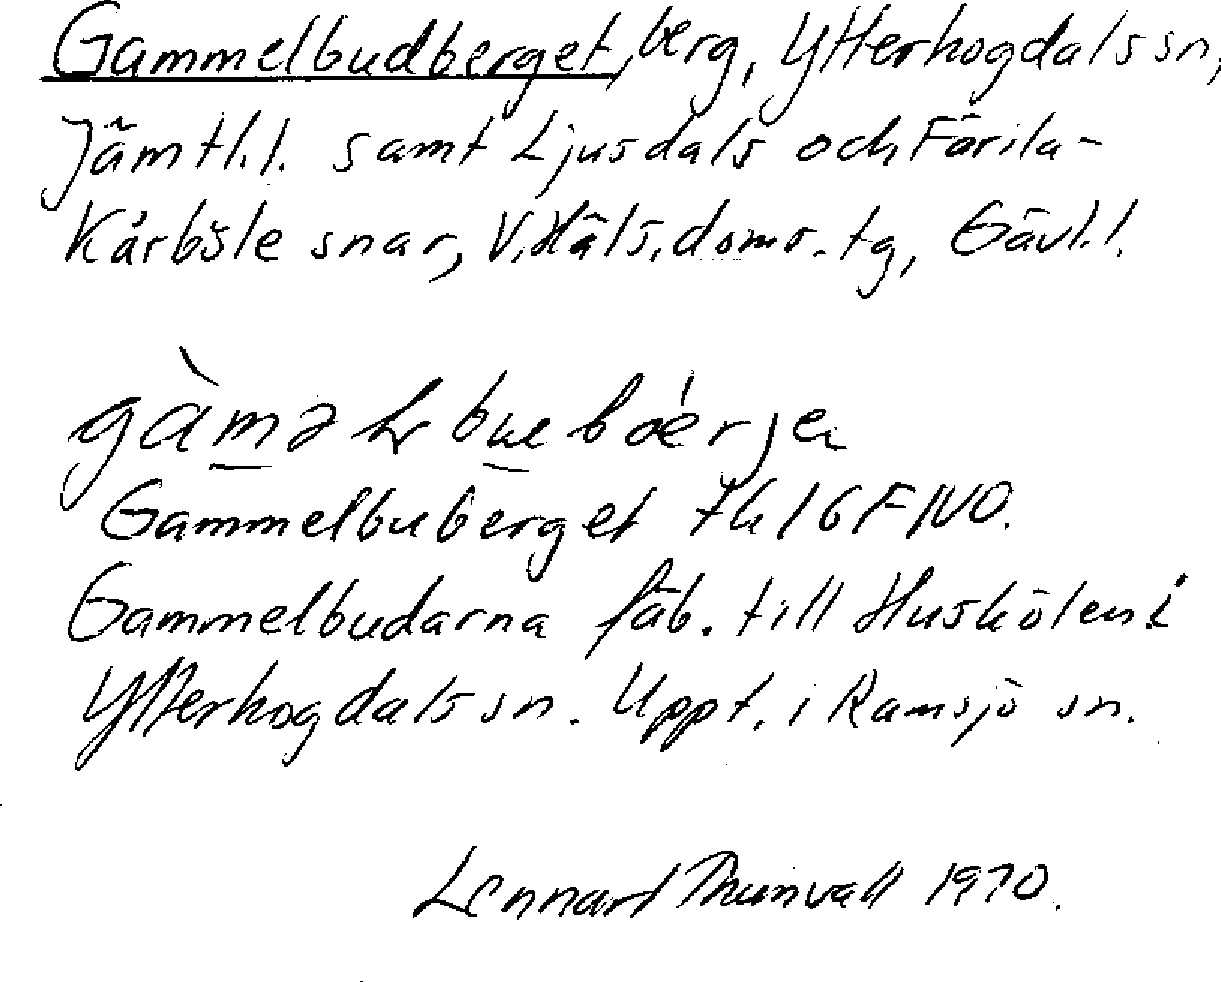 Gammelbudberget, berg, Ytterhogdals sn,
Jämtl.l. samt Ljusdals och Färila-
Kårböle snar, V. Häls. doms. tg, Gävl.l.
Gammelbuberget 7h/6F NO.
Gammelbudarna fäb. till Huskölen i
Ytterhogdals sn. Uppt. i Ramsjö sn.
Lennart Thunvall 1970.